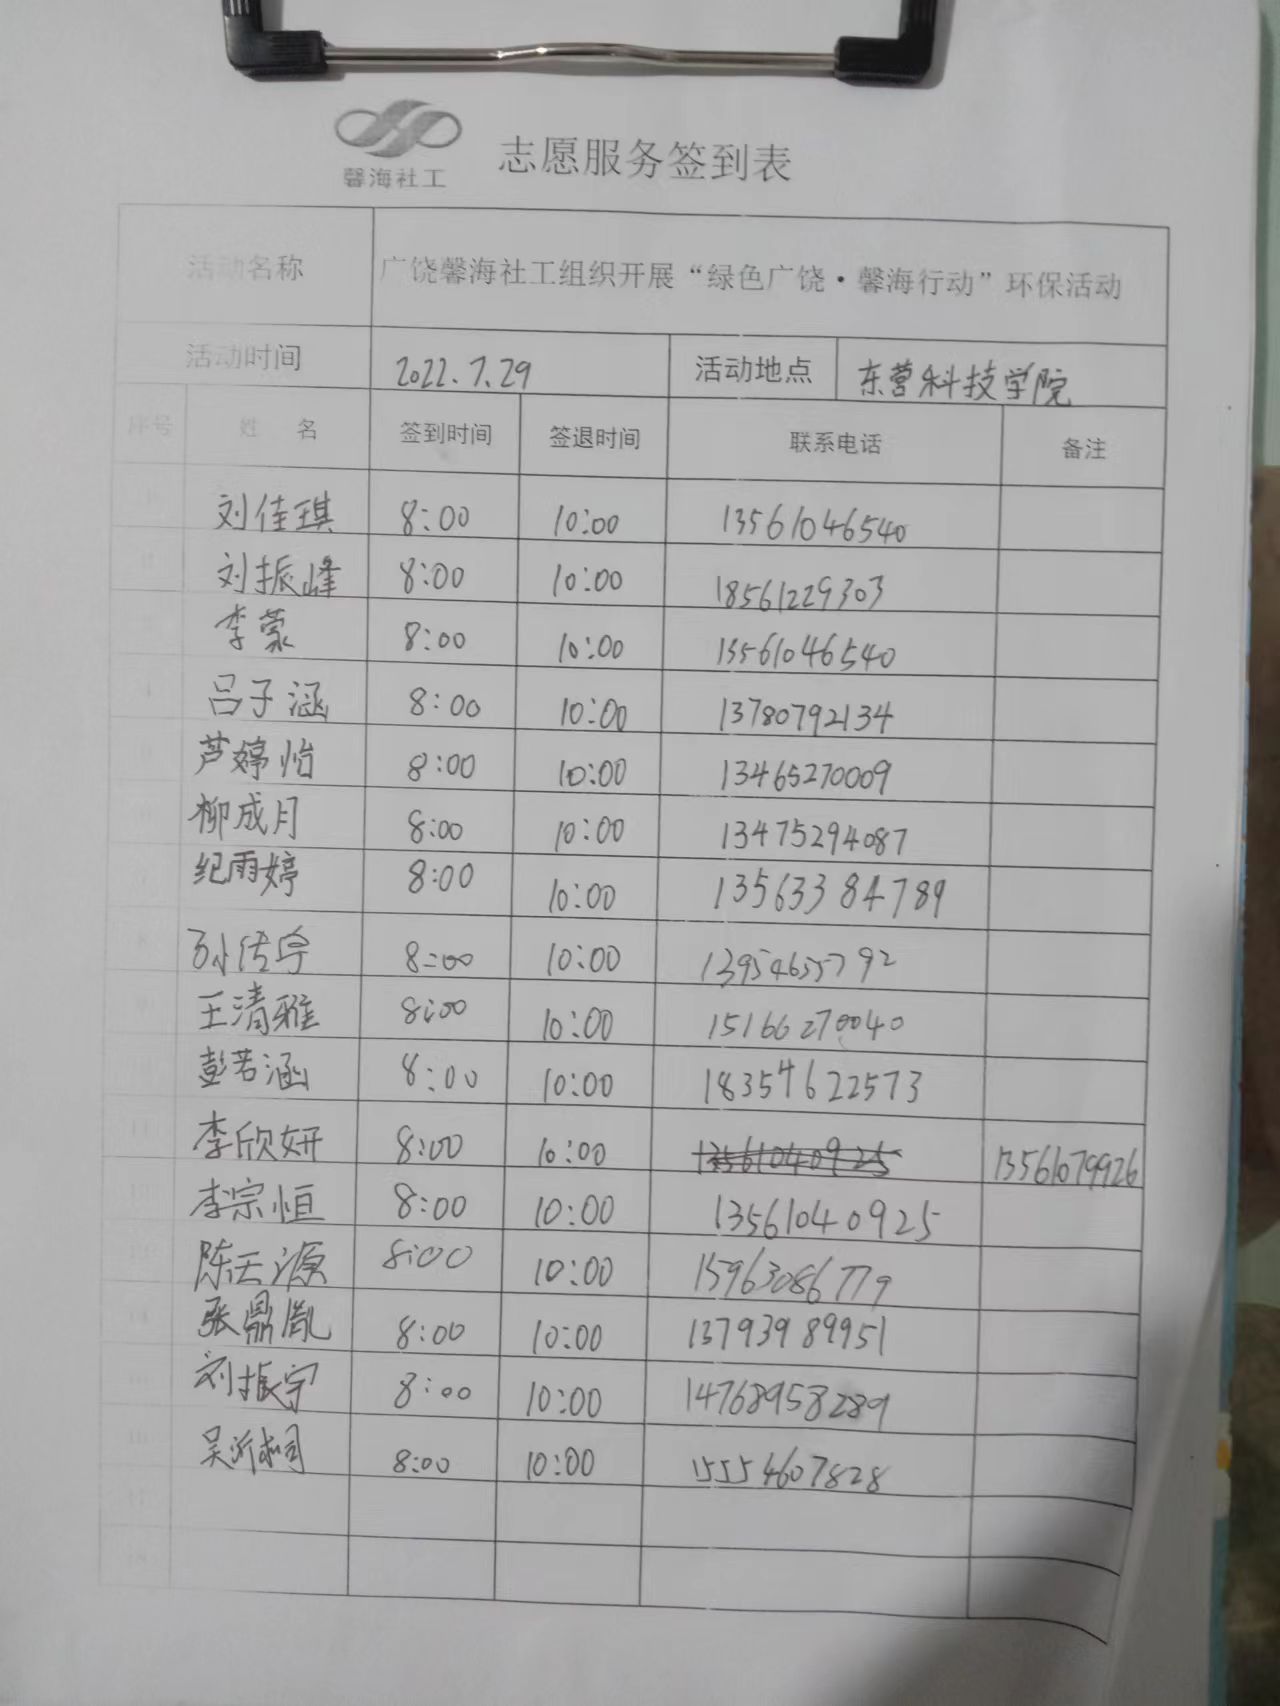 馨海社工
志愿服务签到表
活动名称 广饶馨海社工组织开展“绿色广饶·馨海行动”环保活动
活动时间 2022.7.29 活动地点 东营科技学院
序号 姓 名 签到时间 签退时间 联系电话 备注
刘佳琪 8:00 10:00 13561046540
刘振峰 8:00 10:00 18561229303
李蒙 8:00 10:00 13561046540
吕子涵 8:00 10:00 13780792134
芦婷怡 8:00 10:00 13465270009
柳成月 8:00 10:00 13475294087
纪雨婷 8:00 10:00 13563384789
8 孙传宇 8:00 10:00 13954655792
9 王清雅 8:00 10:00 15166270040
彭若涵 8:00 10:00 18354622573
11 李欣妍 8:00 10:00 13561040925 13561079926
李宗恒 8:00 10:00 13561040925
陈天源 8:00 10:00 15963086779
张鼎胤 8:00 10:00 13793989951
刘振宇 8:00 10:00 14768958289
吴沂桐 8:00 10:00 15554607828